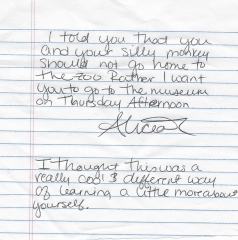 I told you that you
and your silly monkey
should not go home to
the zoo Rather I want
you to go to the museum
on Thursday Afternoon
Alicia
I thought this was a
really cool & different way
of learning a little more about
yourself.